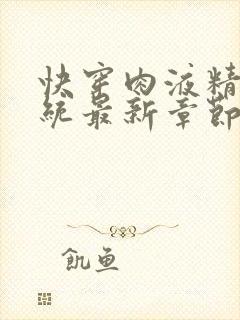 快穿肉液精
统最新章节
飢鱼